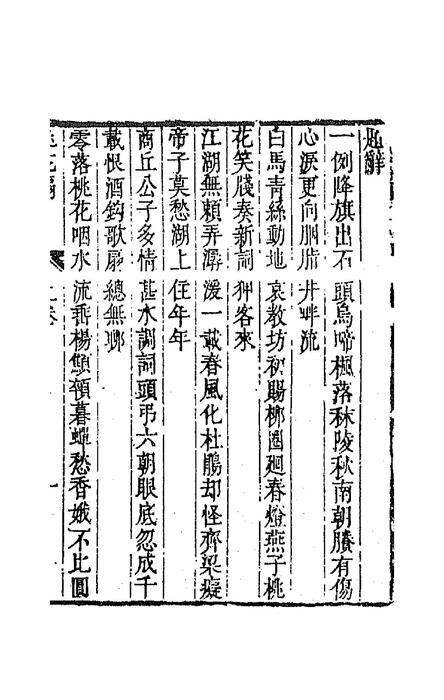 題辭
一例降旗出石頭烏啼楓落秣陵秋南朝賸有傷
心淚更向胭脂井畔流
白馬青絲動地哀教坊初賜柳圈迴春燈燕子桃
花笑牋奏新詞狎客來
江湖無賴弄潺湲一載春風化杜鵑却怪齊梁癡
帝子莫愁湖上住年年
商丘公子多情甚水調詞頭弔六朝眼底忽成千
載恨酒鉤歌扇總無聊
零落桃花咽水流垂楊顦顇暮蟬愁香娥不比圓